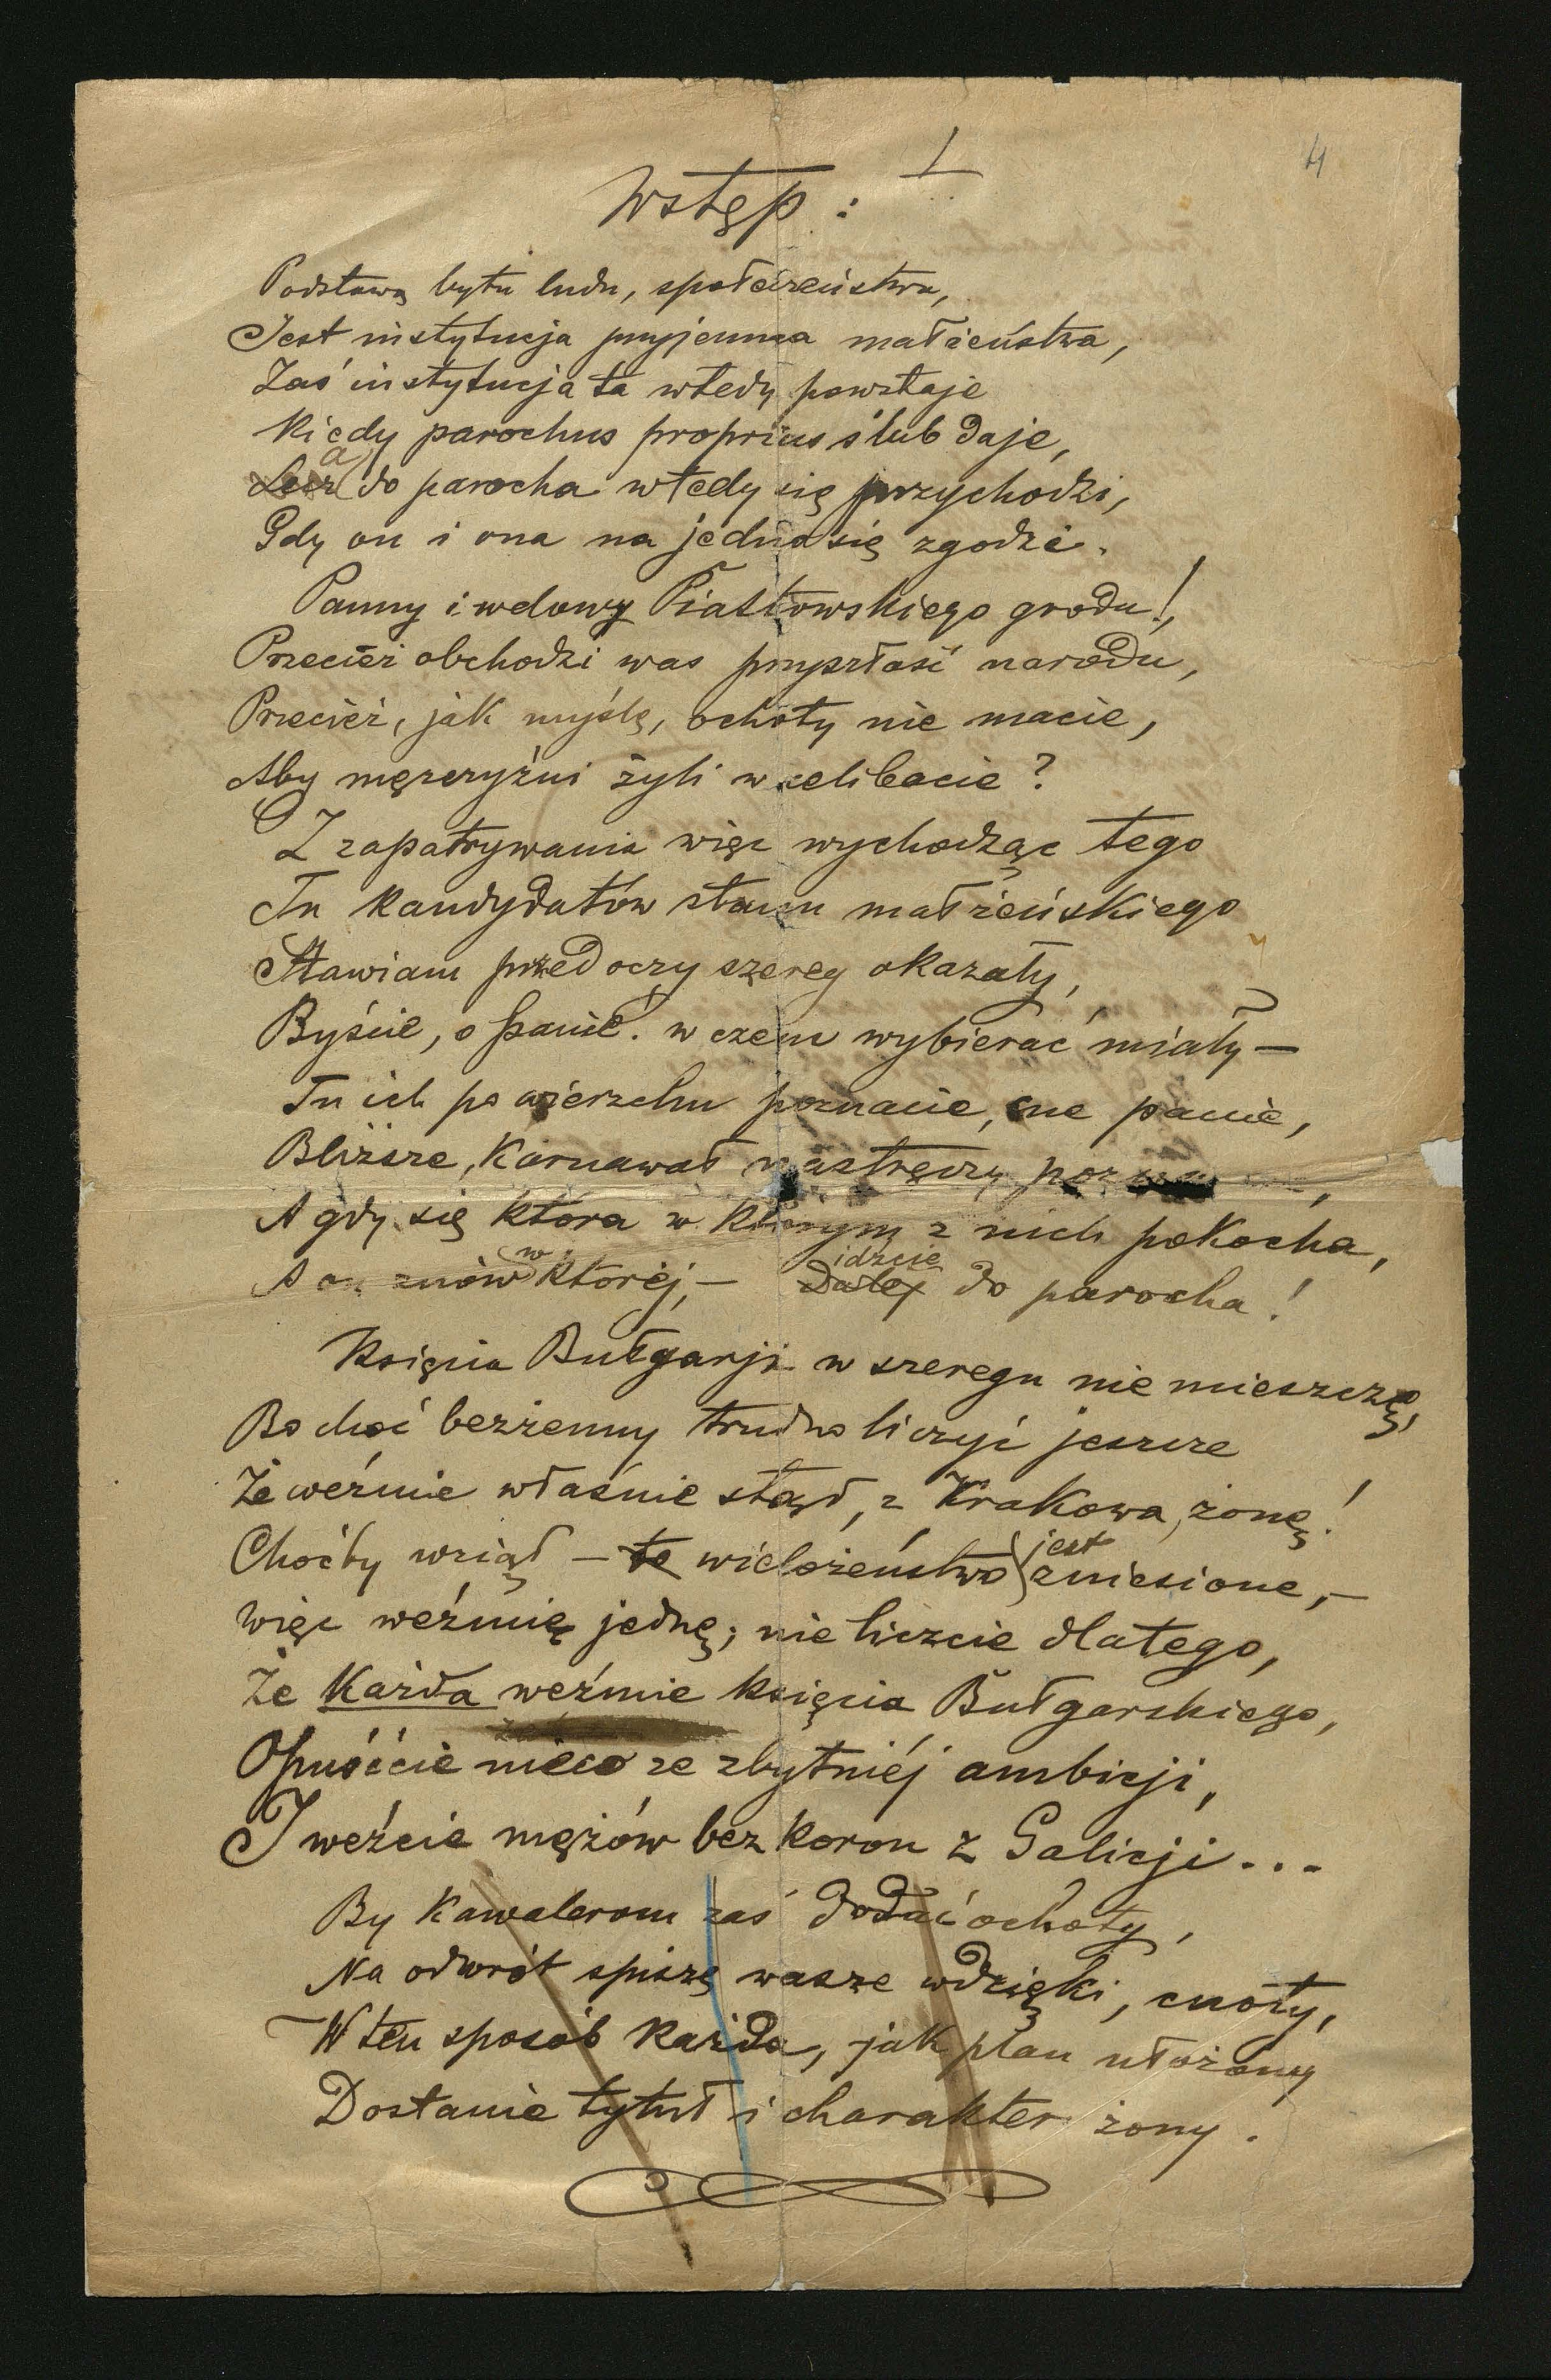 4
I
Wstęp:
Podstawą bytu ludu, społeczeństwa,
Jest instytucja przyjemna małżeństwa,
Zaś instytucja ta wtedy powstaje
Kiedy parochus proprius ślub daje,
Lecz a do parocha wtedy się przychodzi,
Gdy on i ona na jedno się zgodzi.
Panny i wdowy Piastowskiego grodu!,
Przecież obchodzi was przyszłość narodu,
Przecież, jak myślę, ochoty nie macie,
Aby mężczyźni żyli w celibacie?
Z zapatrywania więc wychodząc tego
Tu kandydatów stanu małżeńskiego
Stawiam przed oczy szereg okazały,
Byście, o panie! w czem wybierać miały —
Tu ich po wierzchu poznacie, me panie,
Bliższe, Karnawał nastręczy
A gdy się która w którym z nich pokocha,
A on znów w której, — Dalej idźcie do parocha!
Księcia Bułgarji w szeregu nie mieszczę,
Bo choć bezżenny trudno liczyć jeszcze
Że weźmie właśnie stąd, z Krakowa, żonę!
Choćby wziął — to wielożeństwo jest zniesione, —
Więc weźmie jedną; nie liczcie dlatego,
Że Każda weźmie księcia Bułgarskiego,
Opuśćcie nieco ze zbytniéj ambicji,
I weźcie mężów bez koron z Galicji...
By Kawalerom zaś dodać ochoty,
Na odwrót spiszę wasze wdzięki, cnoty,
W ten sposób każda, jak plan ułożony
Dostanie tytuł i charakter żony.